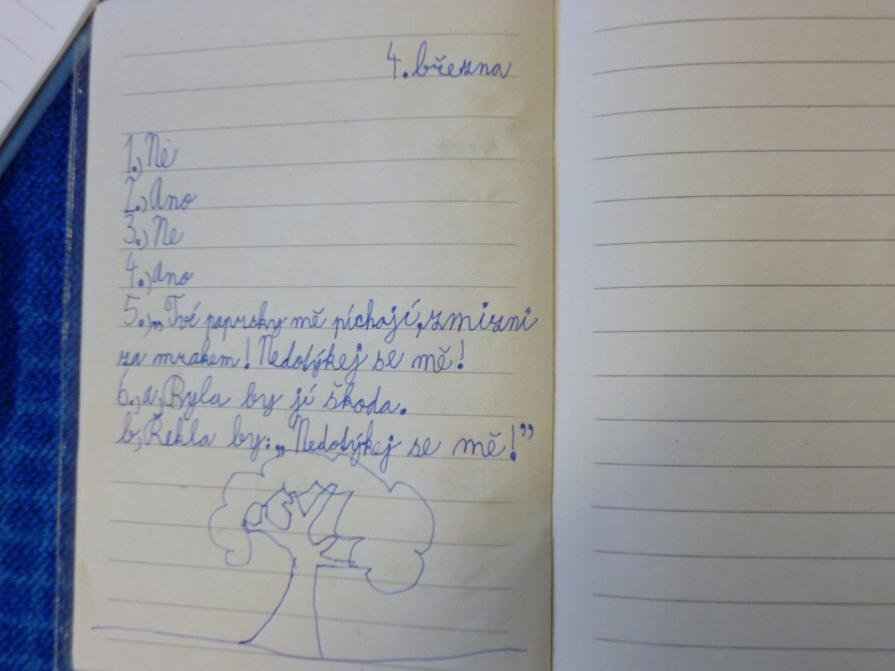 4. března
1.) Ne
2.) Ano
3.) Ne
4.) Ano
5.) „Tvé paprsky mě píchají, zmizni
za mrakem! Nedotýkej se mě!
6.) a, Byla by jí škoda.
b, Řekla by: „Nedotýkej se mě!”